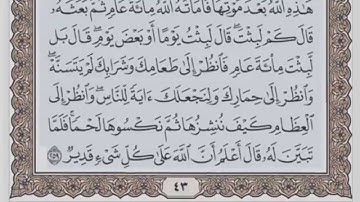 هَٰذِهِ ٱللَّهُ بَعۡدَ مَوۡتِهَاۖ فَأَمَاتَهُ ٱللَّهُ مِاْئَةَ عَامٖ ثُمَّ بَعَثَهُۥۖ
قَالَ كَمۡ لَبِثۡتَۖ قَالَ لَبِثۡتُ يَوۡمًا أَوۡ بَعۡضَ يَوۡمٖۖ قَالَ بَل
لَّبِثۡتَ مِاْئَةَ عَامٖ فَٱنظُرۡ إِلَىٰ طَعَامِكَ وَشَرَابِكَ لَمۡ يَتَسَنَّهۡۖ
وَٱنظُرۡ إِلَىٰ حِمَارِكَ وَلِنَجۡعَلَكَ ءَايَةٗ لِّلنَّاسِۖ وَٱنظُرۡ إِلَى
ٱلۡعِظَامِ كَيۡفَ نُنشِزُهَا ثُمَّ نَكۡسُوهَا لَحۡمٗاۚ فَلَمَّا
تَبَيَّنَ لَهُۥ قَالَ أَعۡلَمُ أَنَّ ٱللَّهَ عَلَىٰ كُلِّ شَيۡءٖ قَدِيرٞ ٢٥٩
٤٣